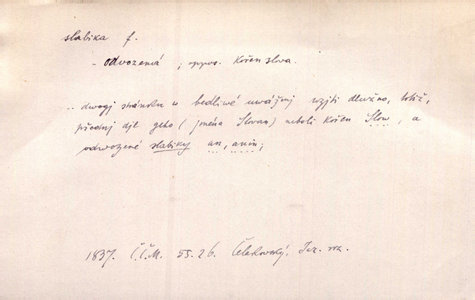 slabika f.
- odvozená, oppos. kořen slova.
.. dwogj stránku w bedliwé uwáženj wzjti dlužno, totiž,
přednj djl geho (jména Slovan) neboli kořen Slow, a
odwozené slabiky an, anin;
1837. Č.Č.M. 55. 26. Čelakovský.